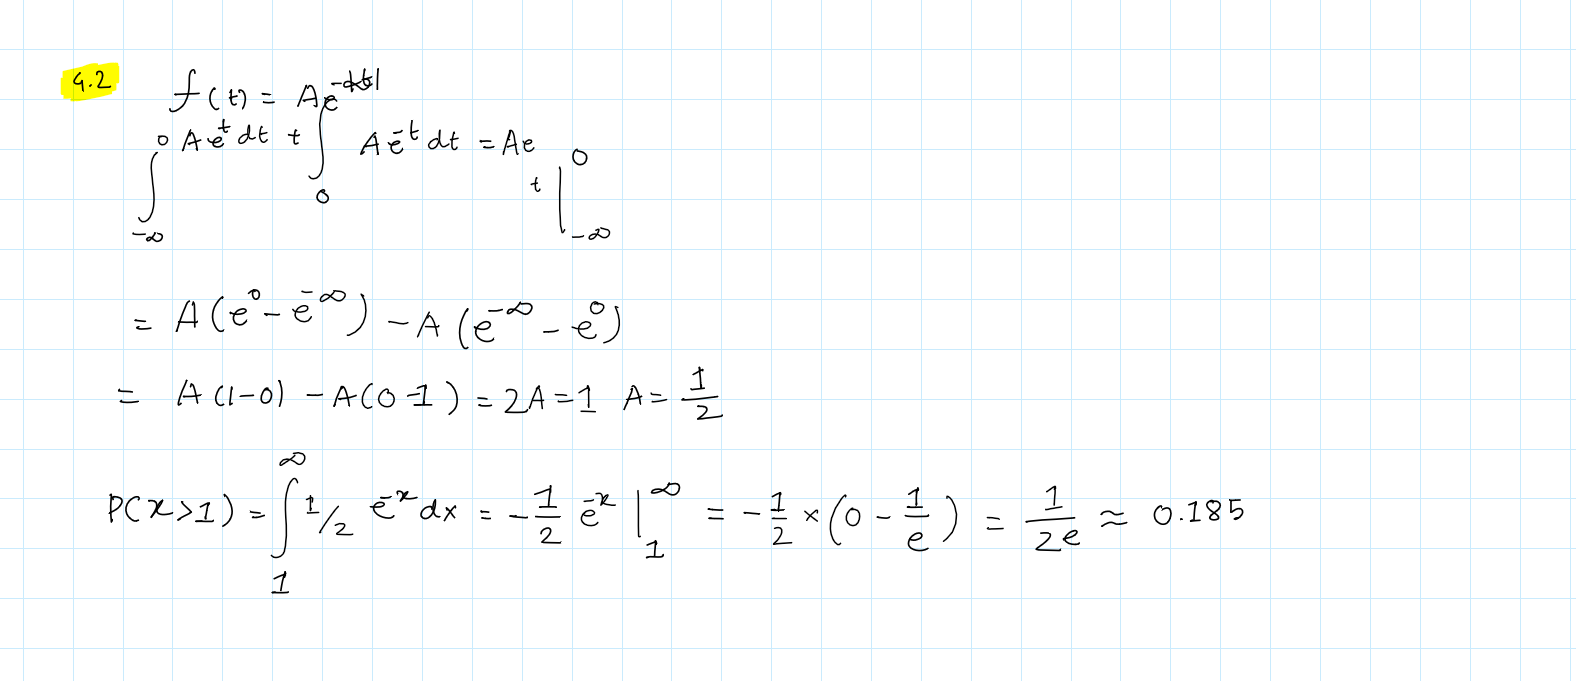 4.2 f(t) = Ae^{-|t|}
∫_{-∞}^{0} Ae^{t} dt + ∫_{0} Ae^{-t} dt = Ae^{t} |_{-∞}^{0}
= A(e^{0} - e^{-∞}) - A(e^{-∞} - e^{0})
= A(1-0) - A(0-1) = 2A = 1 A = 1/2
P(x>1) = ∫_{1}^{∞} 1/2 e^{-x} dx = -1/2 e^{-x} |_{1}^{∞} = -1/2 × (0 - 1/e) = 1/2e ≈ 0.185